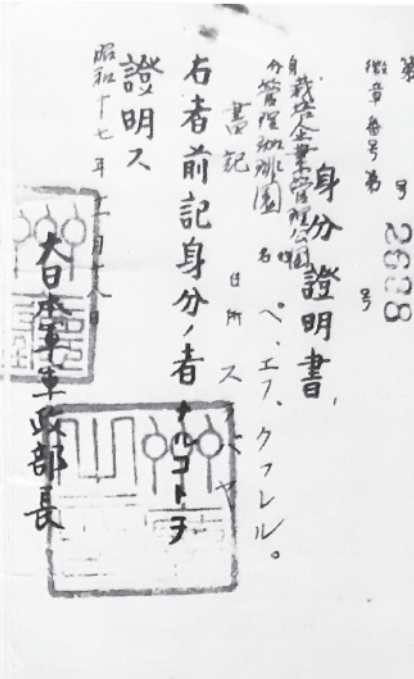 第 号
徽章番号第 2698 号
身分證明書
栽培企業管理公團
身分 管理珈琲園
書記
姓名 ペ、エフ、クフレル。
住所 スラバヤ
右者前記身分ノ者ナルコトヲ
證明ス
昭和十七年十二月十八日
大日本軍軍政部長